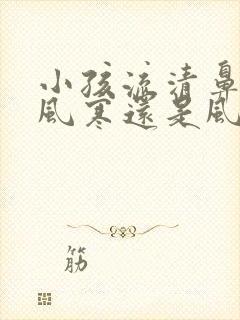 小孩流清鼻
風寒還是風
筋